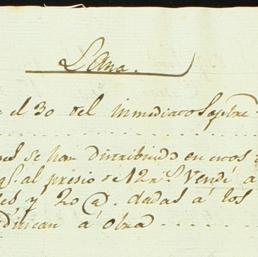 Lana.
el 30 del inmediato Sepbre
se han distribuido en esos
al presio de 12 rs. Vendí a
es y 20 @. dadas á los
dedican á obra